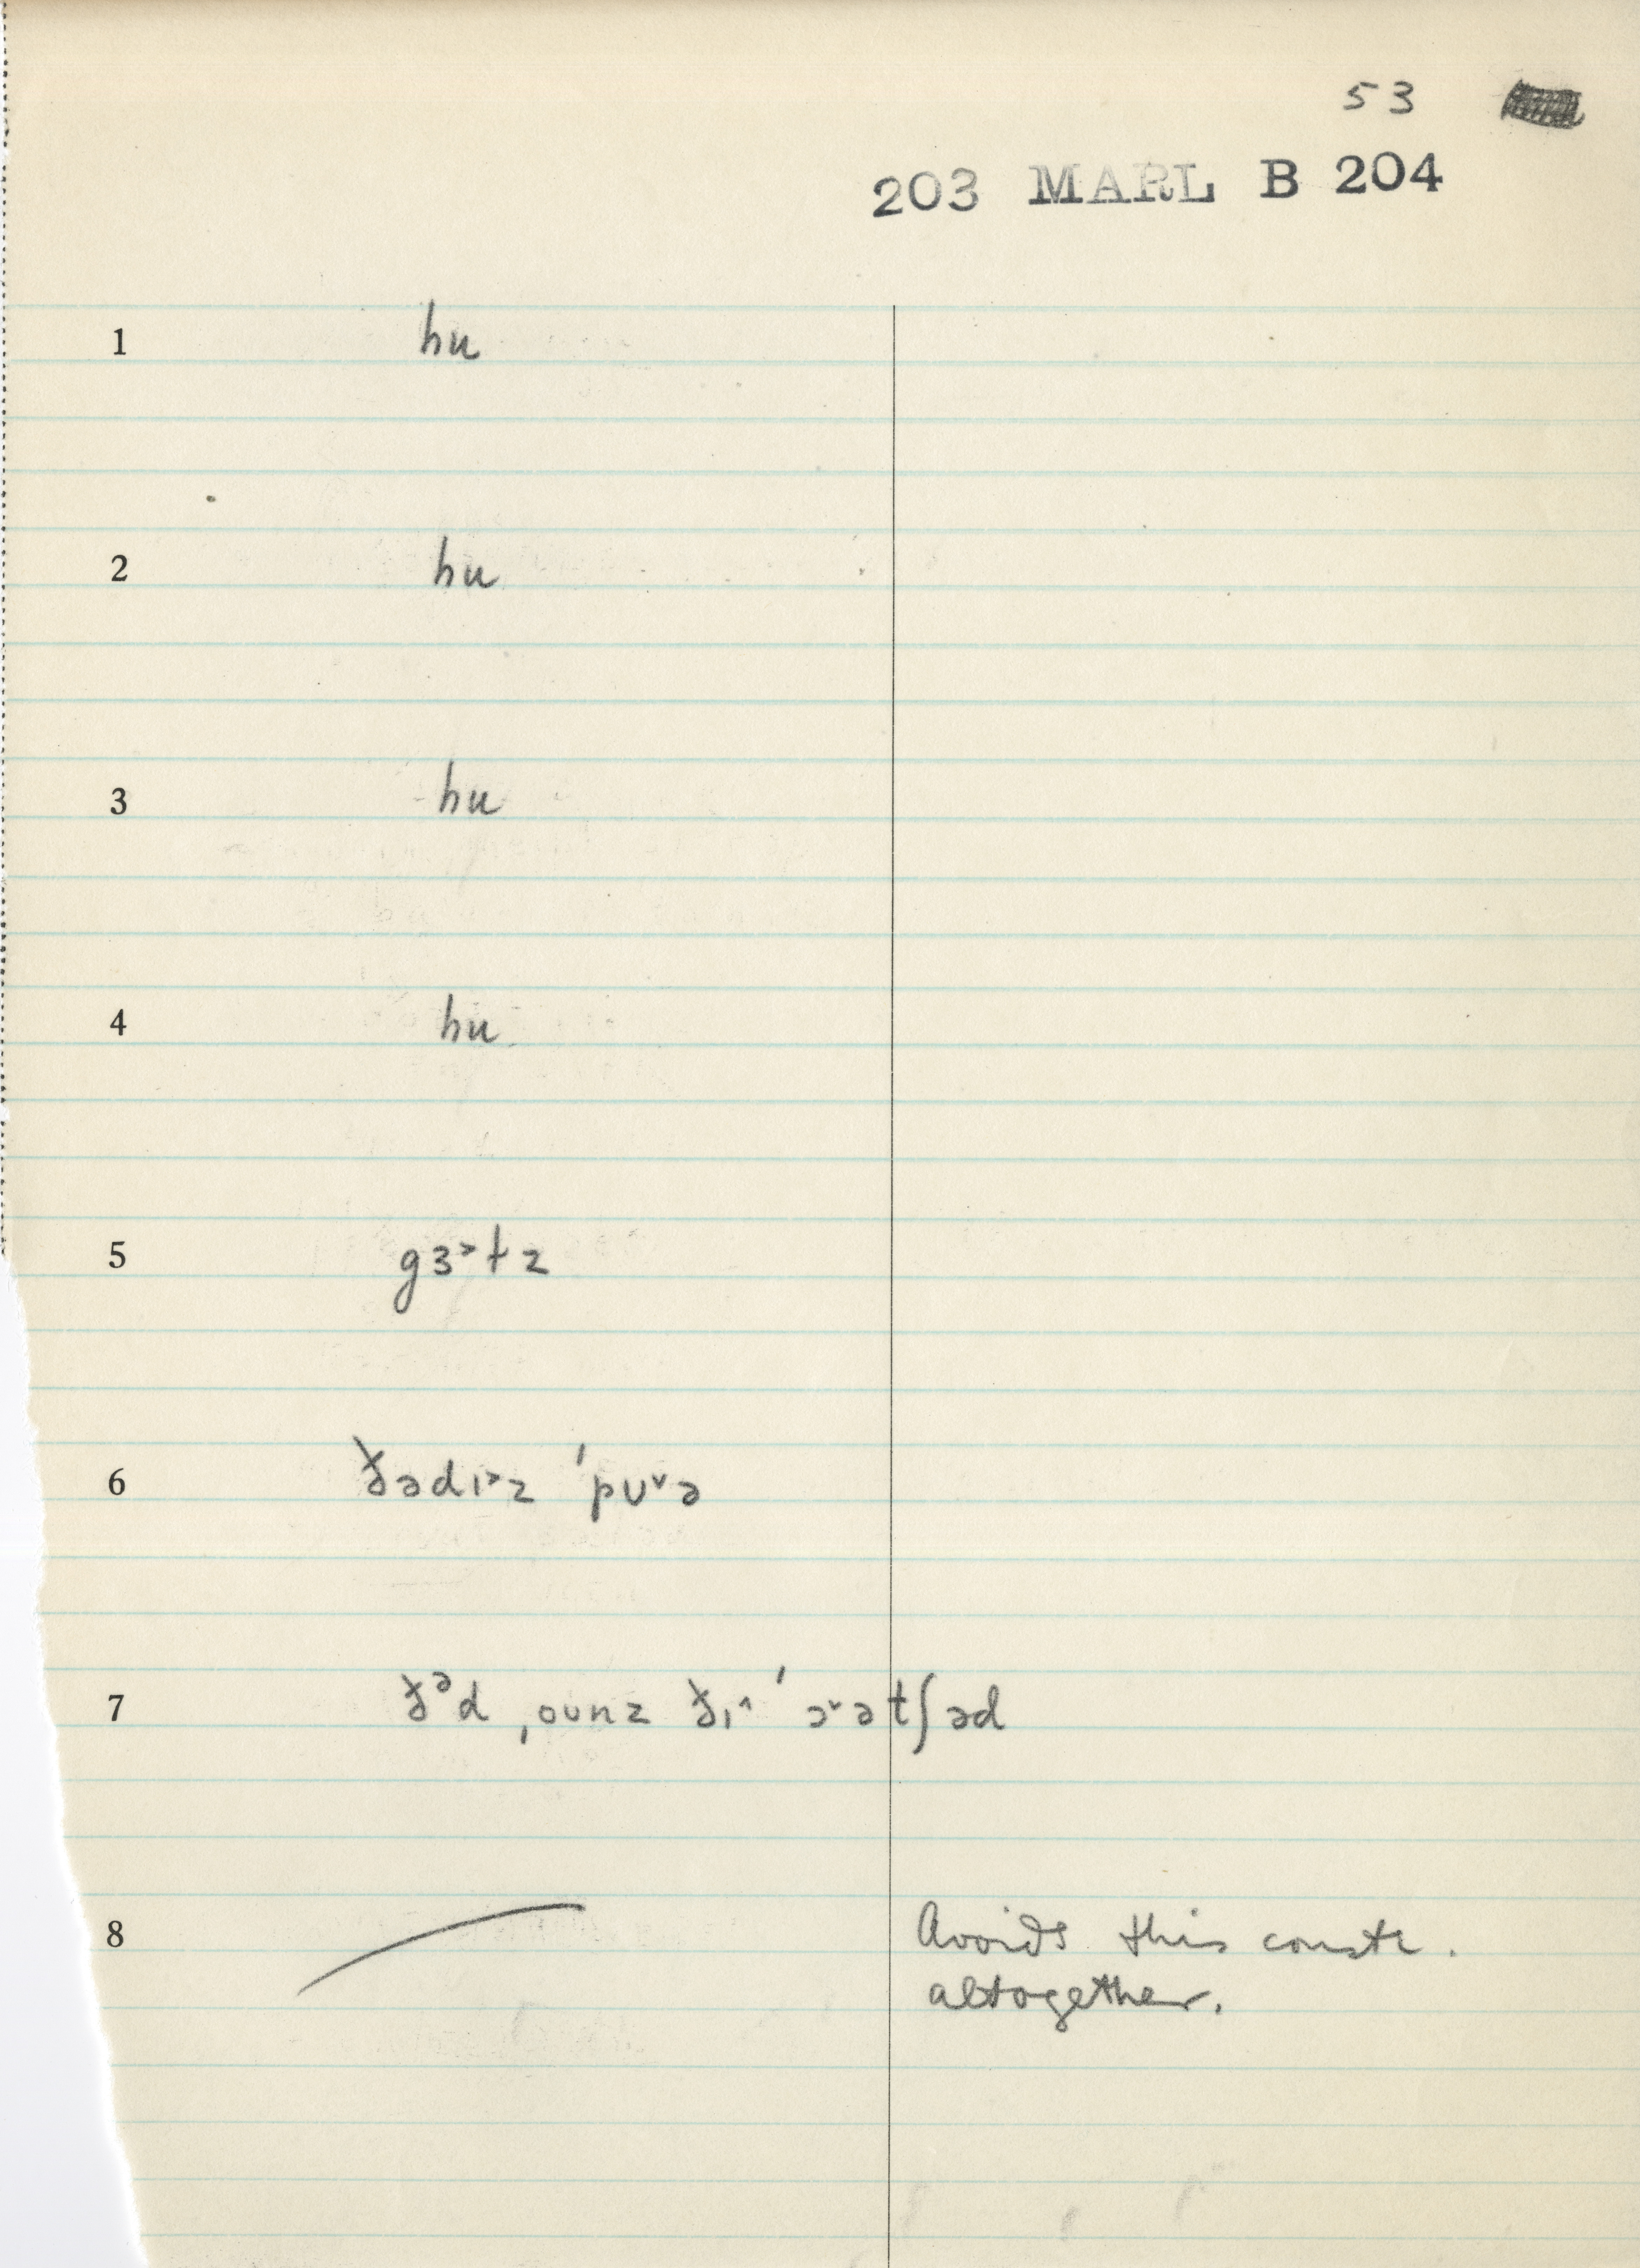 53
203 MARL B 204
1 hu
2 hu
3 hu
4 hu
5 gɜ˃ɫz
6 ðədɪ˃z ˈpʊ˅ə
7 ðᵊd ˌoʊnz ðɪ˄ ˈɔ˅ətʃəd
8 Avoids this constr.
altogether.